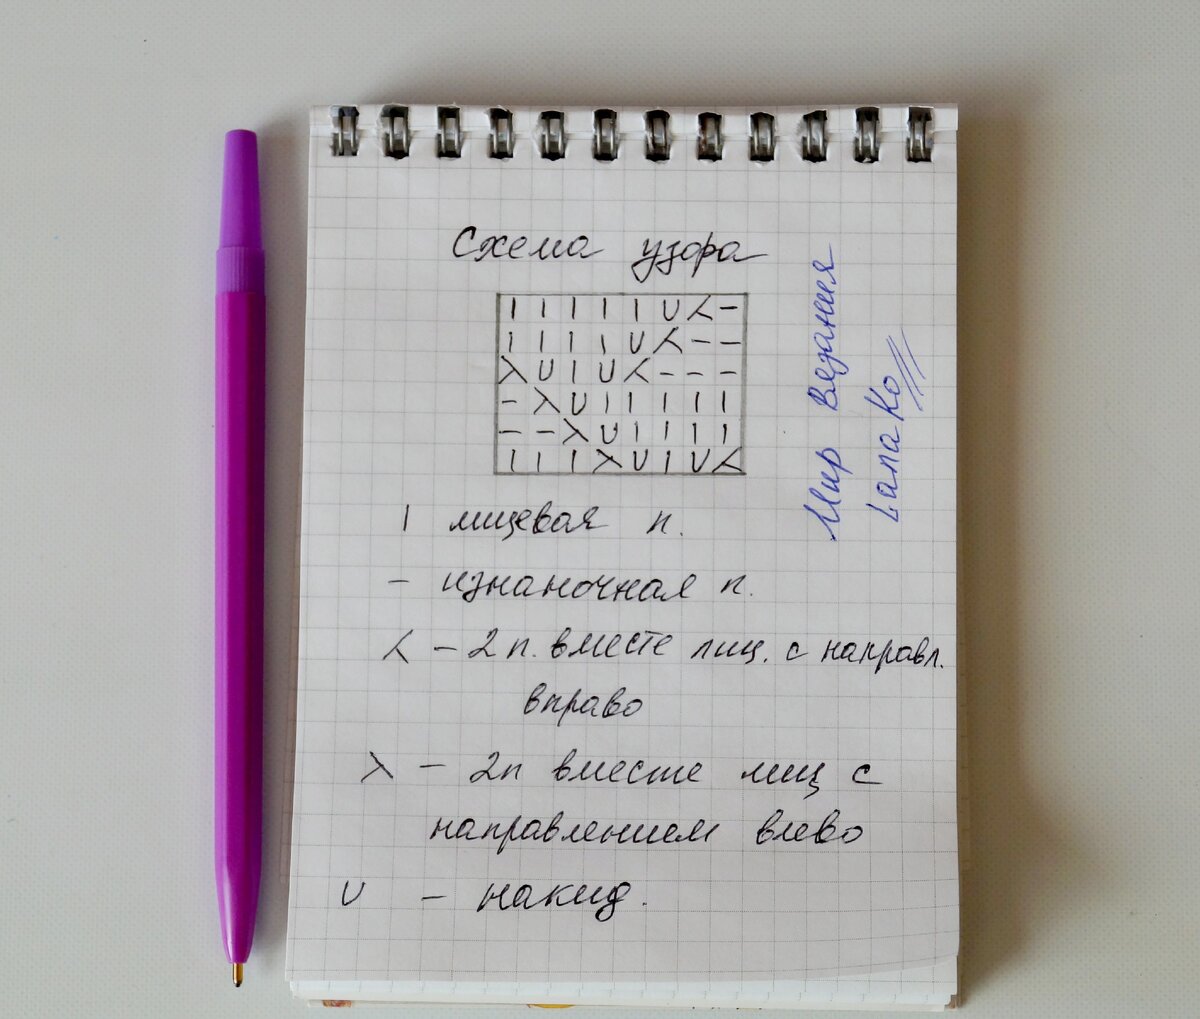 Схема узора
I I I I I U ⋌ –
I I I I U ⋌ – –
⋋ U I U ⋌ – – –
– ⋋ U I I I I I
– – ⋋ U I I I I
I I I ⋋ U I U ⋌
I лицевая п.
– изнаночная п.
⋌ – 2 п. вместе лиц. с направл.
вправо
⋋ – 2п вместе лиц с
направлением влево
U – накид.
Мир Вязания
LanaKo